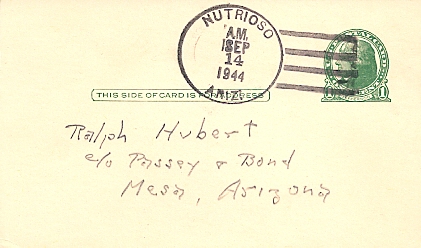 NUTRIOSO
A.M.
SEP
14
1944
ARIZ.
THIS SIDE OF CARD IS FOR ADDRESS
1 1
Ralph Hubert
c/o Passey & Bond
Mesa, Arizona